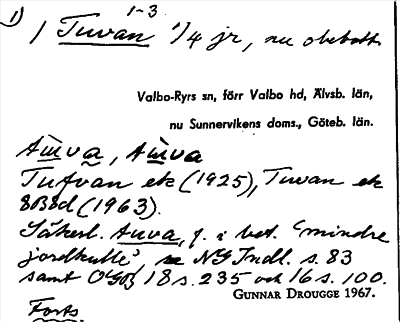 1)
1-3
/ Tuvan 1/4 jr, nu obebott
Valbo-Ryrs sn, förr Valbo hd, Älvsb. län,
nu Sunnervikens doms., Göteb. län.
Tufvan ek (1925), Tuvan ek
8B8d (1963).
Säkerl. tuva, f. i bet. 'mindre
jordkulle', se NG Indl. s. 83
samt OGB 18 s. 235 och 16 s. 100.
GUNNAR DROUGGE 1967.
Forts.